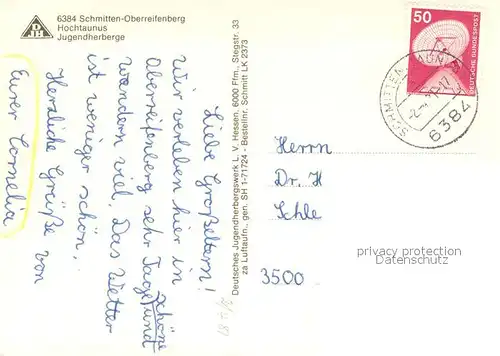 6384 Schmitten-Oberreifenberg
Hochtaunus
Jugendherberge
Liebe Großeltern!
Wir verleben hier in
Oberreifenberg sehr schöne
Tage und
wandern viel. Das Wetter
ist weniger schön.
Herzliche Grüße von
Eurer Cornelia
Deutsches Jugendherbergswerk L. V. Hessen, 6000 Ffm., Stegstr. 33
za Luftaufn., gen. SH 1-71724 - Bestellnr. Schmitt LK 2373
50
DEUTSCHE BUNDESPOST
SCHMITTEN
6384
Herrn
Dr. H
Schle
3500
privacy protection
Datenschutz